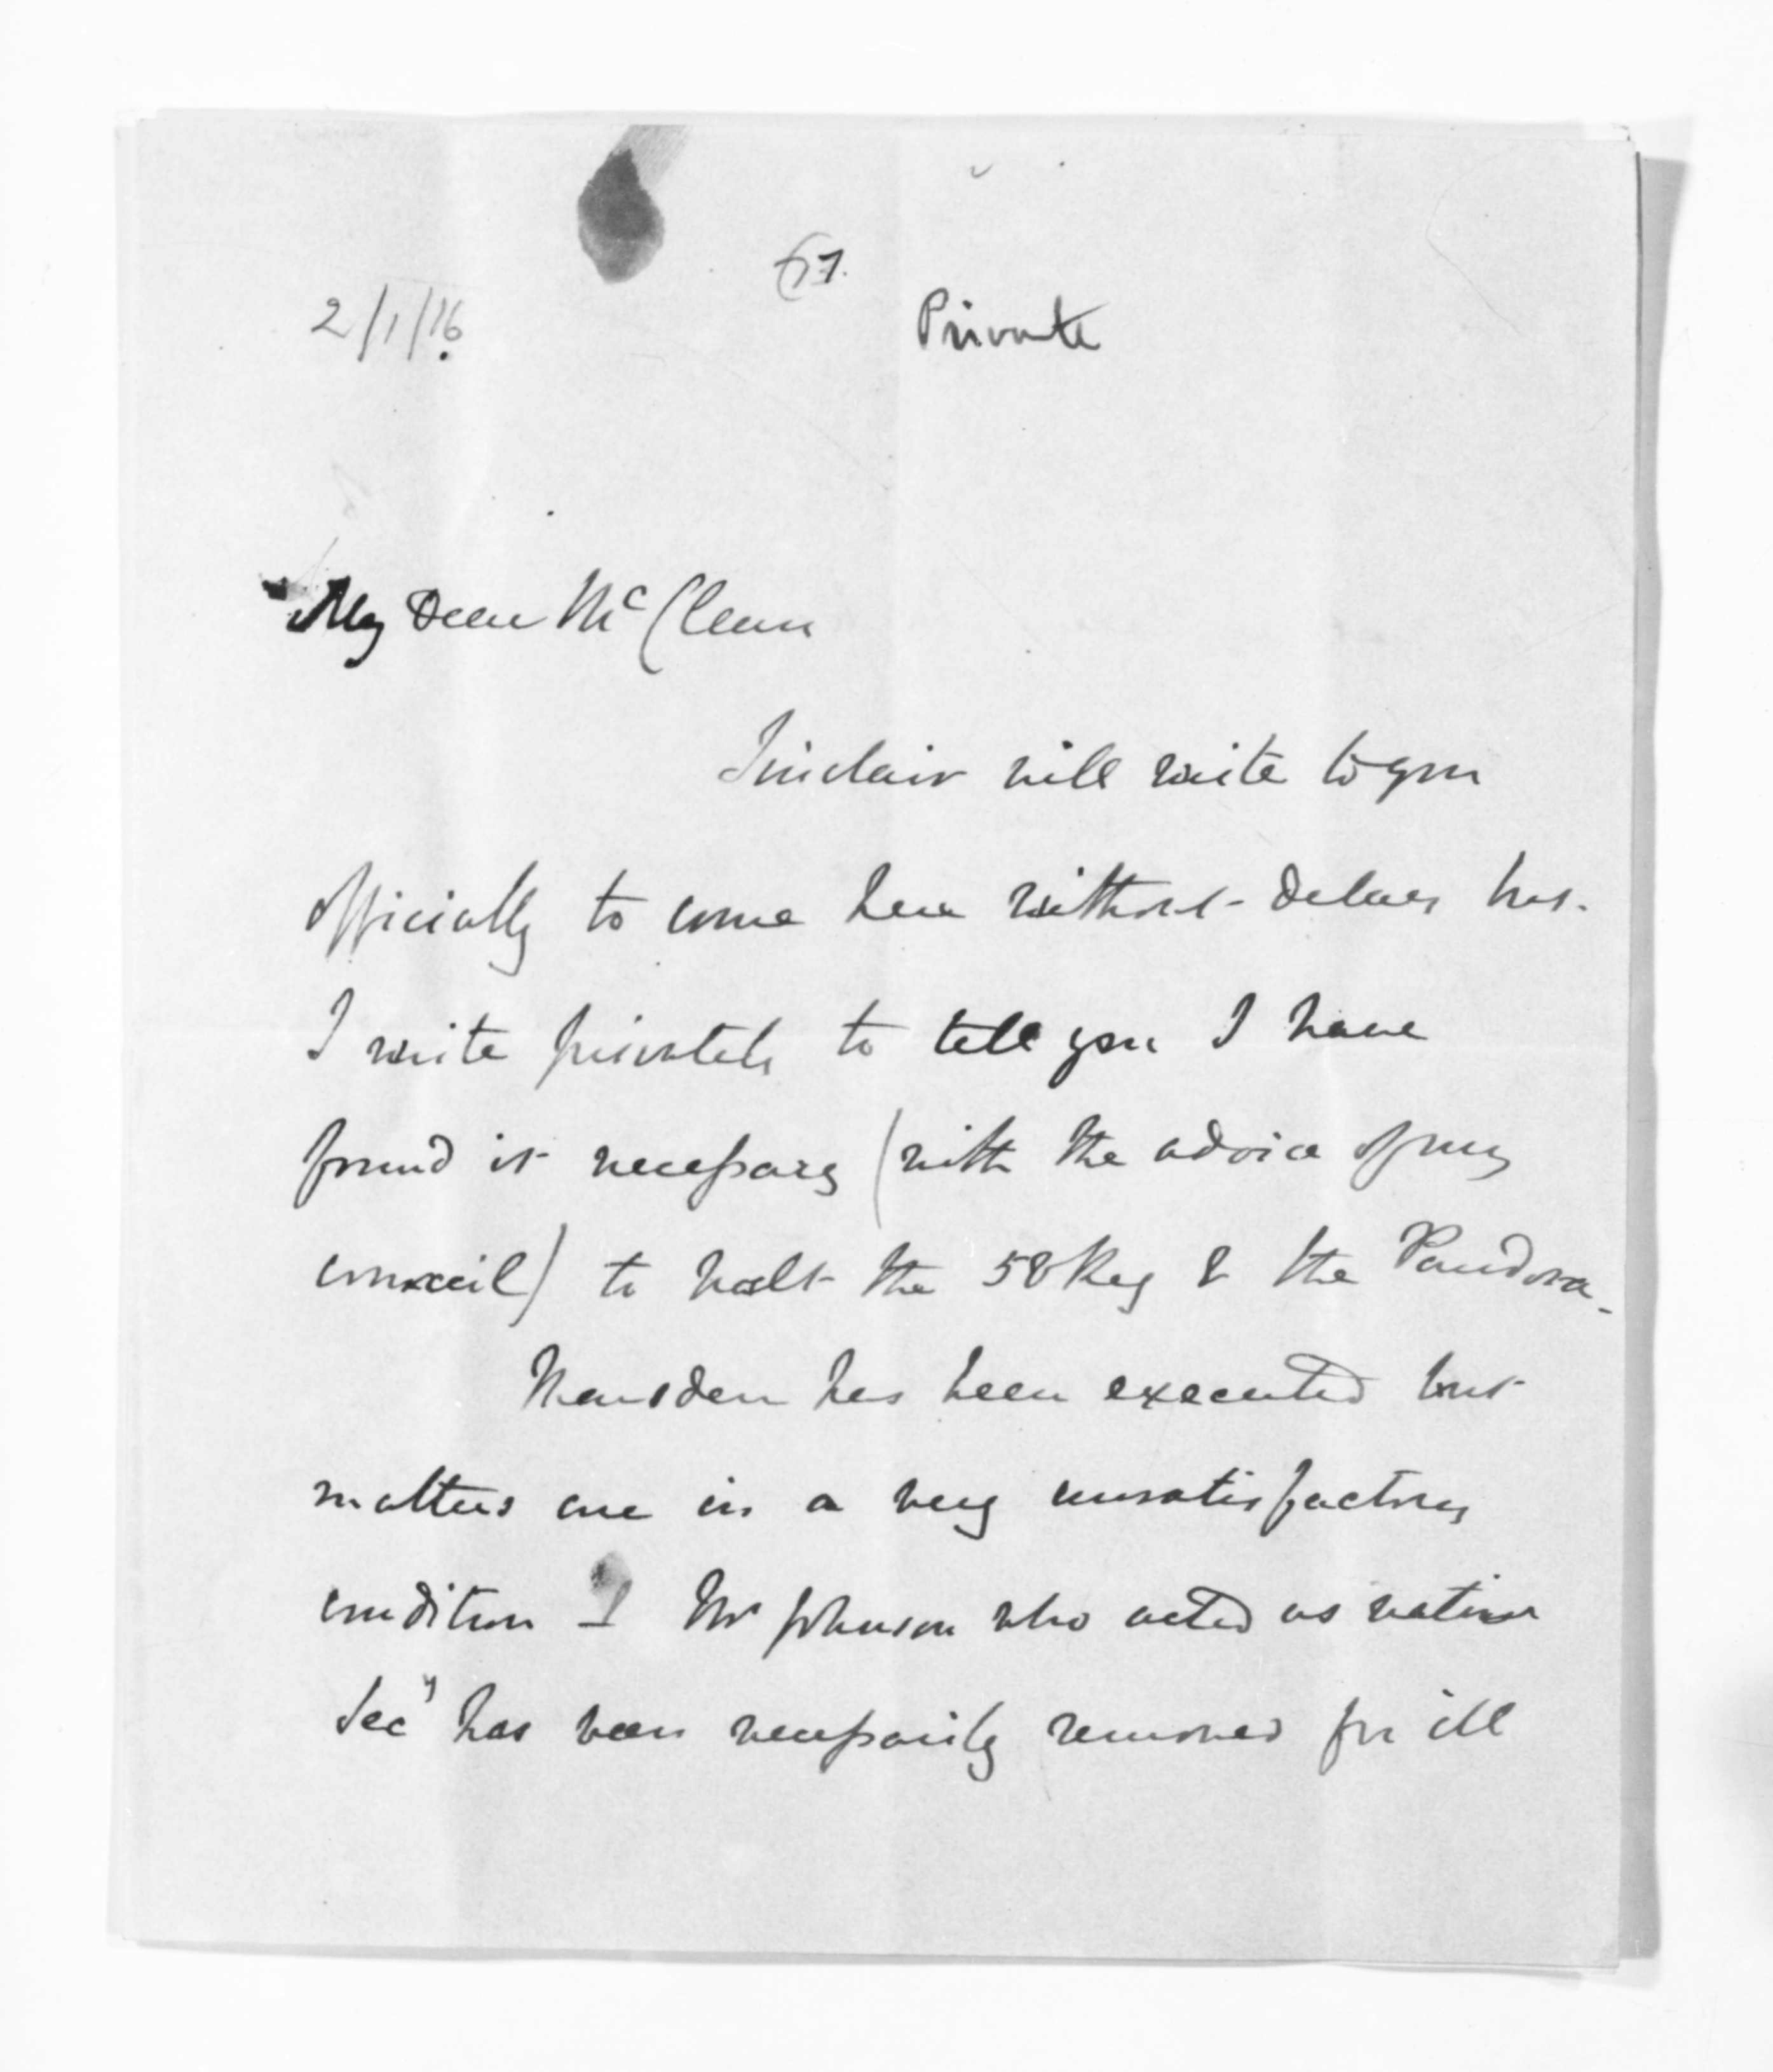 67.
2/1/46 Private
My Dear McClean
Sinclair will write to you
officially to come here without delay but
I write privately to tell you I have
found it necessary (with the advice of my
council) to halt the 58 Reg & the Pandora.
Marsden has been executed but
matters are in a very unsatisfactory
condition & Mr Johnson who acted as native
Secy has been necessarily removed for ill